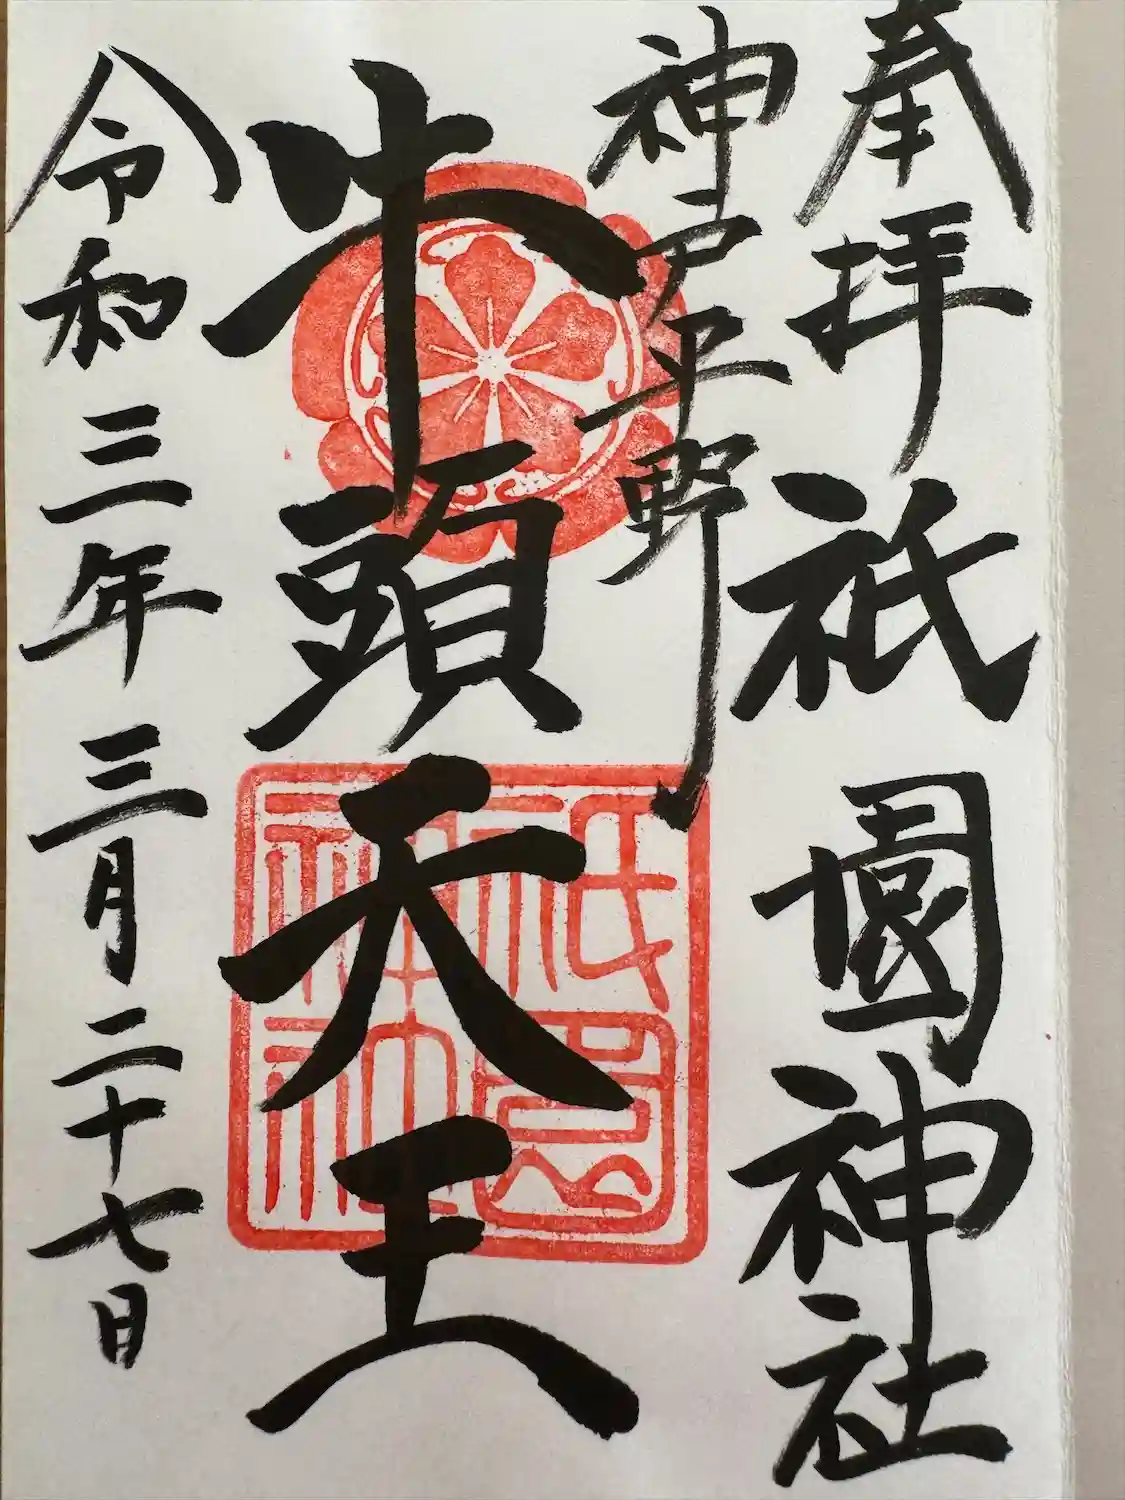 奉拝
祇園神社
神戸平野
牛頭天王
令和三年三月二十七日
祇園
神社